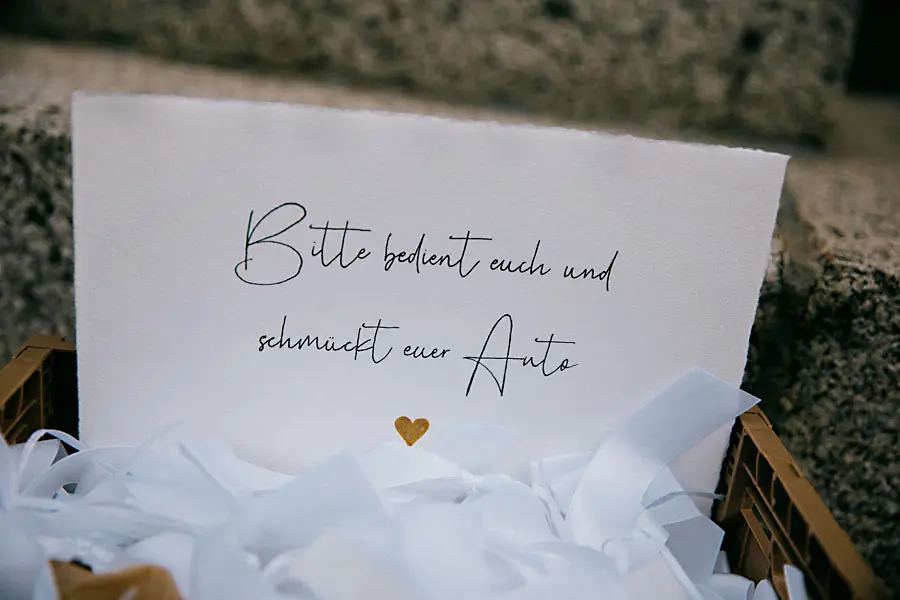 Bitte bedient euch und
schmückt euer Auto